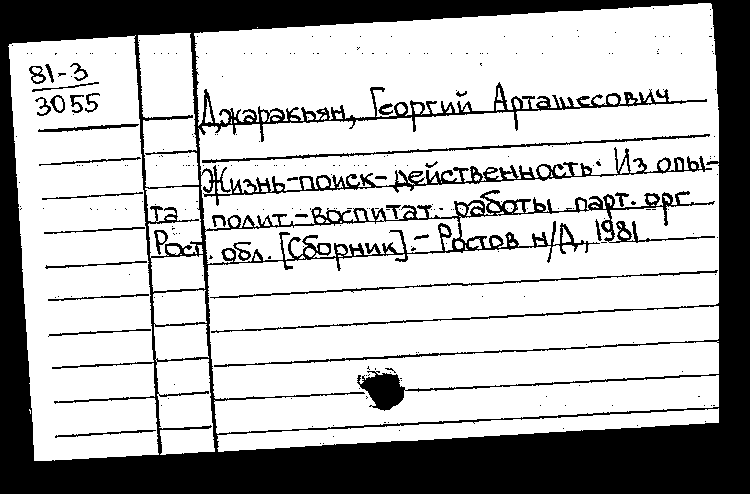 81-3
3055
Джаракьян, Георгий Арташесович
Жизнь-поиск-действенность. Из опы-
та полит.-воспитат. работы парт. орг.
Рост. обл. [Сборник].- Ростов н/Д., 1981.